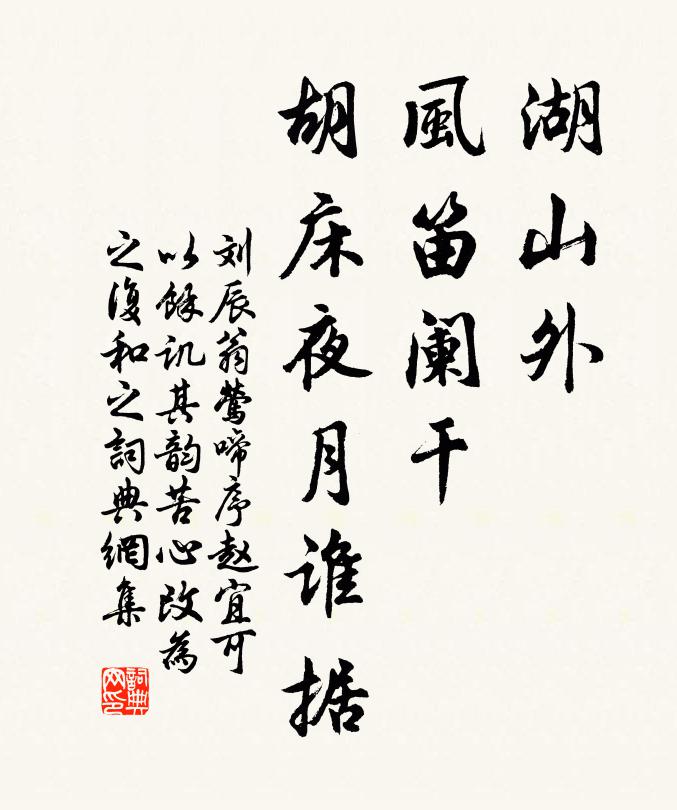 湖山外
風笛阑干
胡床夜月谁据
刘辰翁莺啼序赵宜可
以餘讥其韵苦心改為
之復和之詞典網集
詞典网印